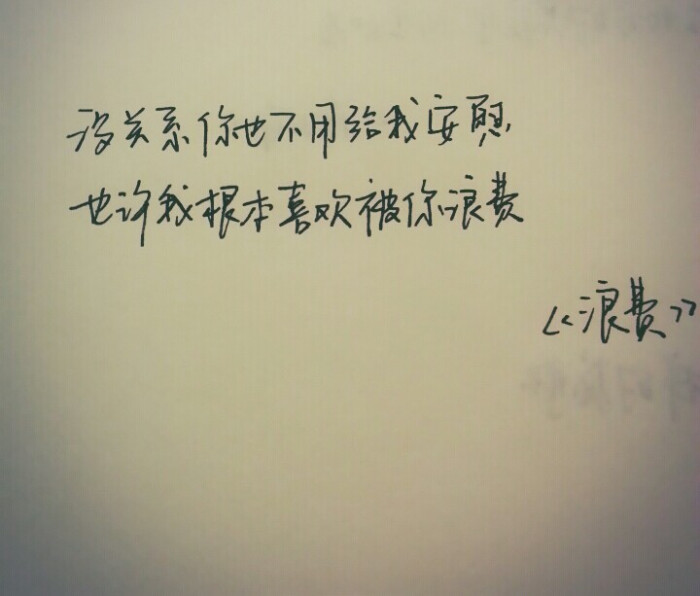 没关系你也不用给我安慰
也许我根本喜欢被你浪费
《浪费》